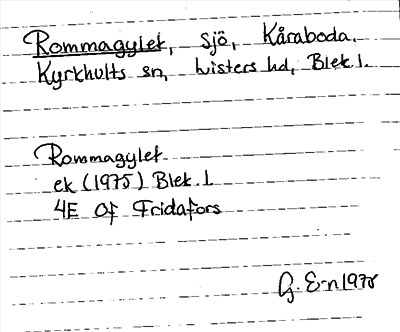 Rommagylet, sjö, Kåraboda.
Kyrkhults sn, Listers hd, Blek. l.
Rommagylet
ek (1975) Blek. l
4E 0f Fridafors
G. E-n 1975